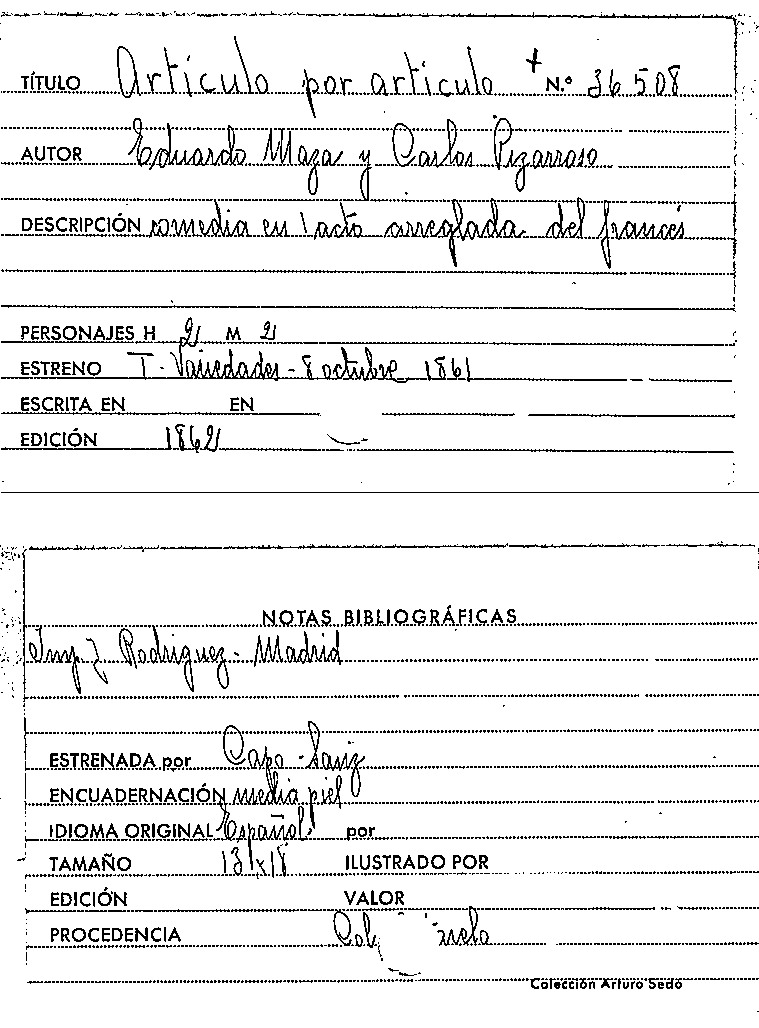 TÍTULO Articulo por articulo + N.º 36508
AUTOR Eduardo Maza y Carlos Pizarroso
DESCRIPCIÓN comedia en 1 acto arreglada del francés
PERSONAJES H 2 M 2
ESTRENO T. Variedades - 8 octubre 1861
ESCRITA EN EN
EDICIÓN 1862
NOTAS BIBLIOGRÁFICAS
Imp J Rodriguez - Madrid
ESTRENADA por Capo - Sanz
ENCUADERNACIÓN media piel
IDIOMA ORIGINAL Español por
TAMAÑO 13 x 18 ILUSTRADO POR
EDICIÓN VALOR
PROCEDENCIA
Colección Arturo Sedó